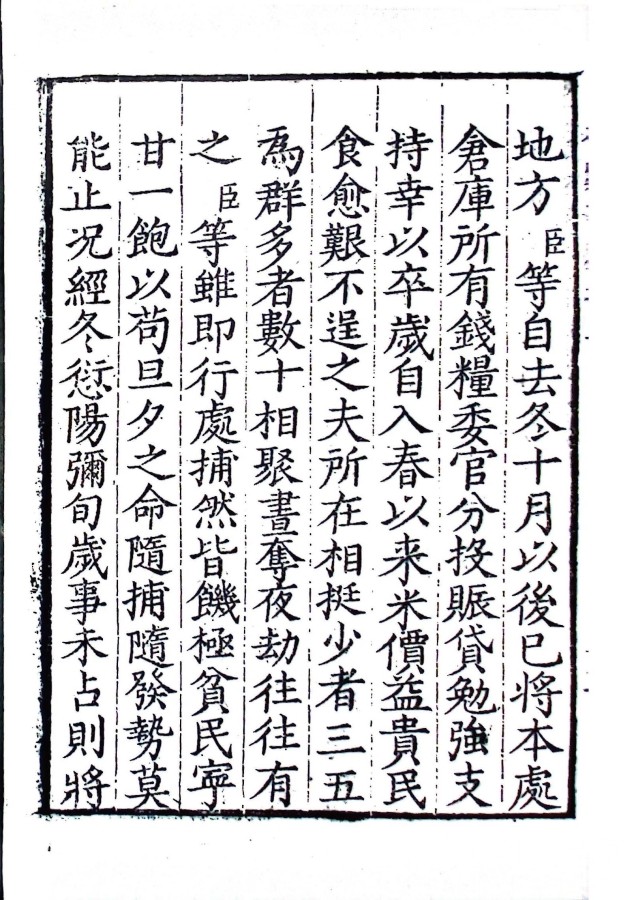 地方臣等自去冬十月以後已將本處
倉庫所有錢糧委官分投賑貸勉強支
持幸以卒歲自入春以来米價益貴民
食愈艱不逞之夫所在相挺少者三五
為群多者數十相聚晝奪夜劫往往有
之臣等雖即行處捕然皆饑極貧民寧
甘一飽以苟旦夕之命隨捕隨發勢莫
能止况經冬愆陽彌旬歲事未占則將